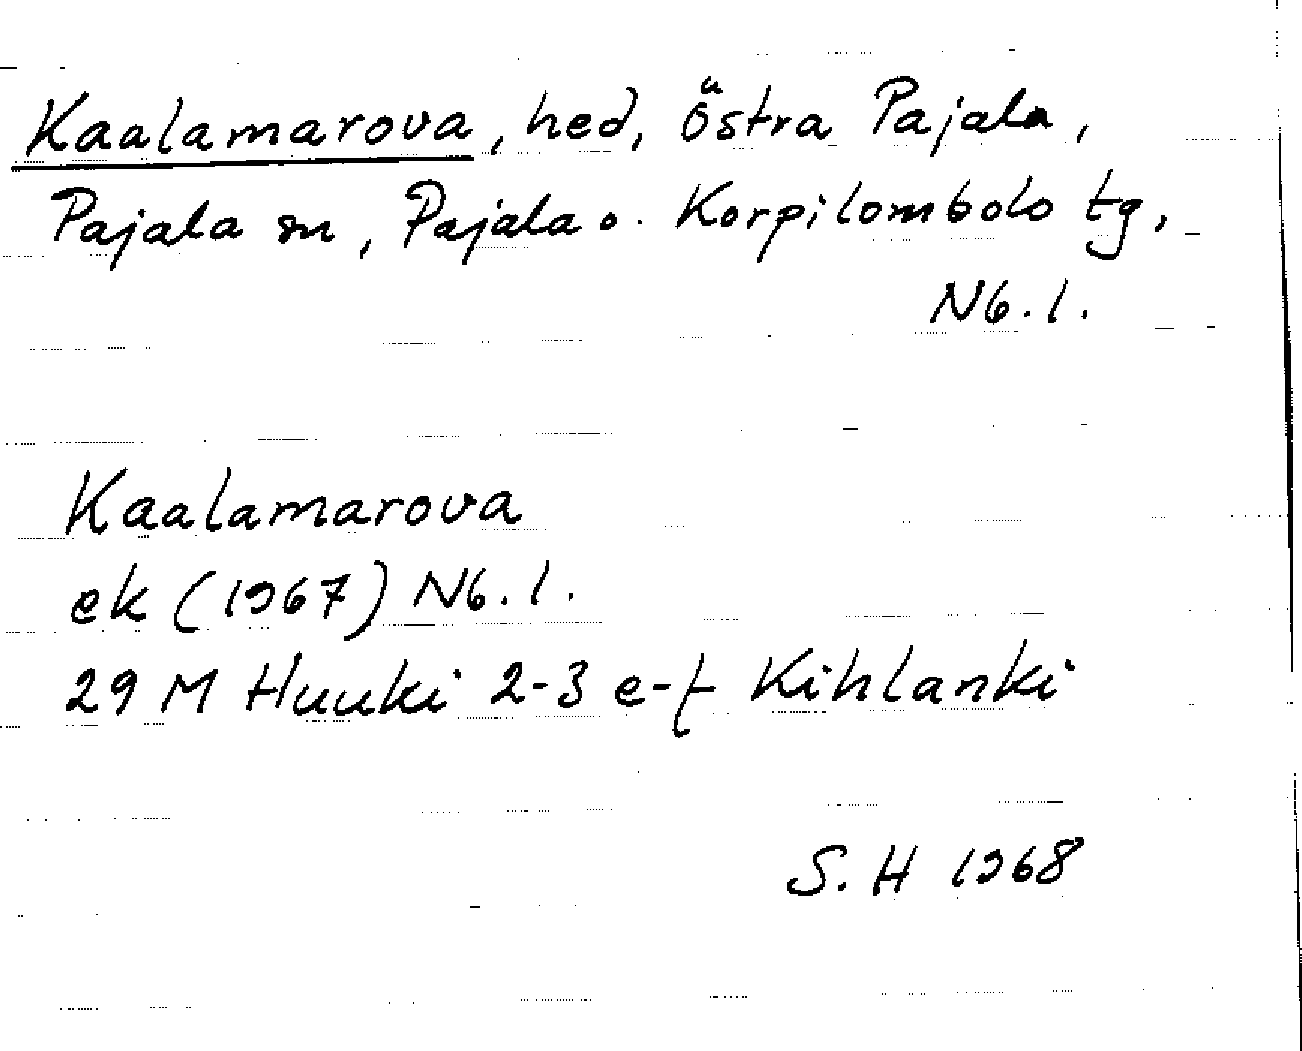 Kaalamarova, hed, östra Pajala,
Pajala sn, Pajala o. Korpilombolo tg,
Nb. l.
Kaalamarova
ek (1967) Nb. l.
29 M Huuki 2-3 e-f Kihlanki
S. H 1968